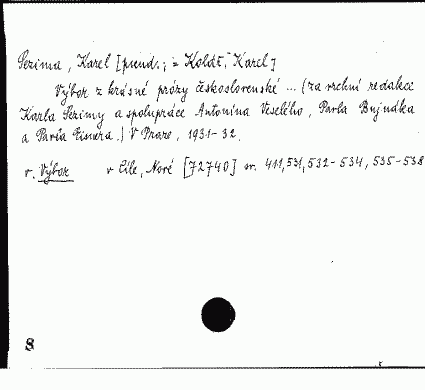 Sezima, Karel [pseud.; = Kolář, Karel]
Výbor z krásné prózy československé ... (za vrchní redakce
Karla Sezimy a spolupráce Antonína Veselého, Pavla Bujnáka
a Pavla Eisnera.) V Praze, 1931-32.
v. Výbor v Cíle, Nové [72740] sv. 411, 531, 532-534, 535-538
8